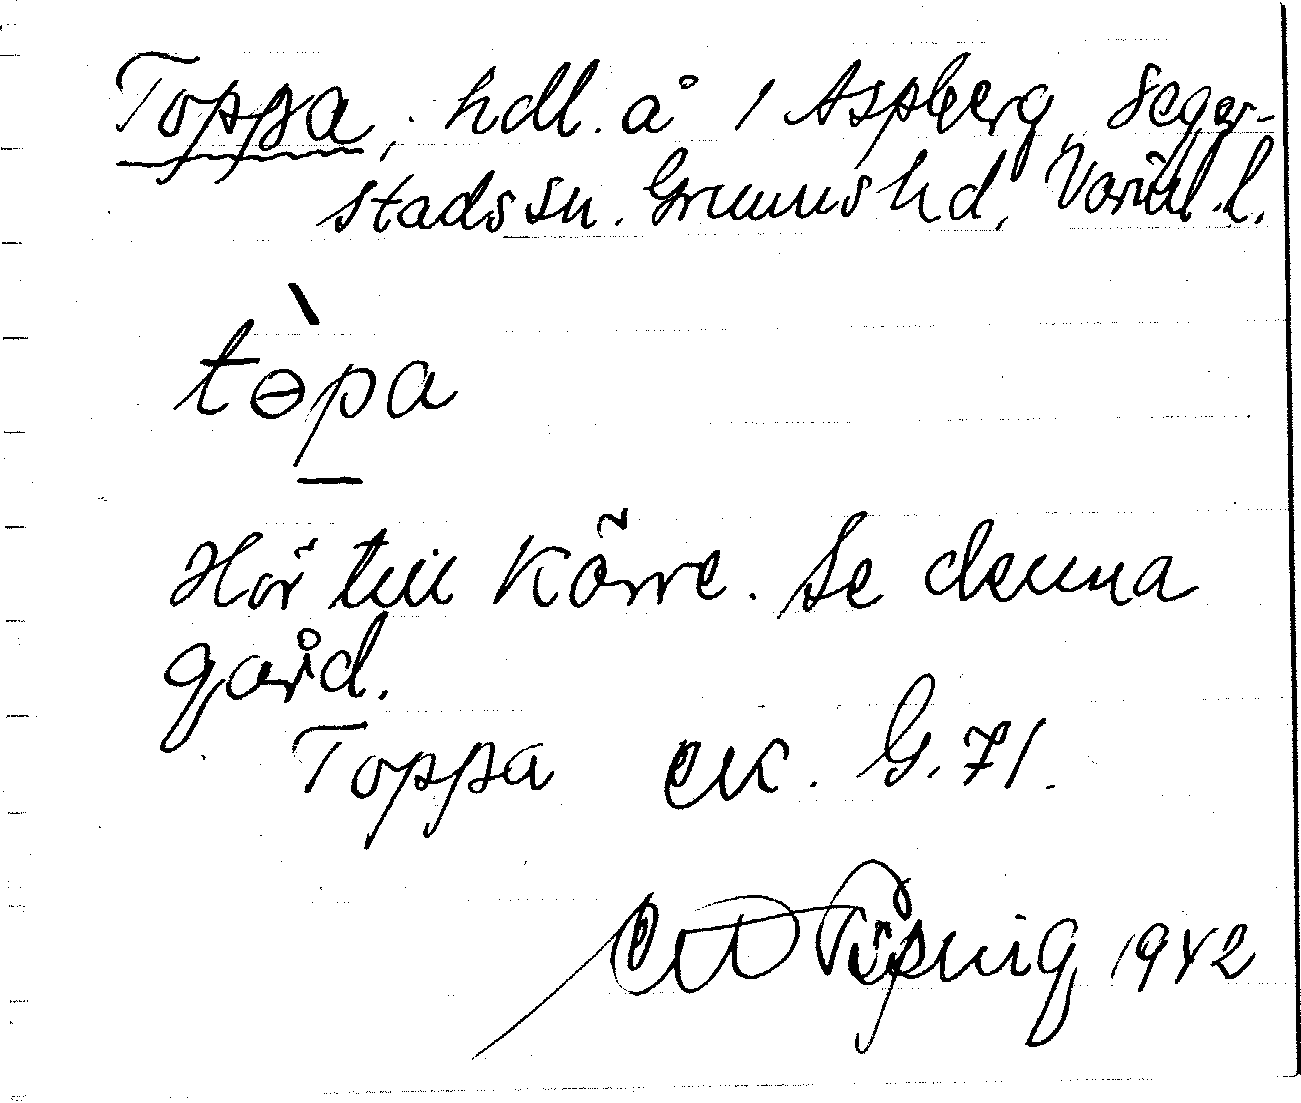 Toppa, hdl. å 1 Aspberg, Seger-
stads sn. Grums hd, Värml. l.
tɵ̀pa
Hör till Körre. Se denna
gård.
Toppa ek. G. 71.
1942